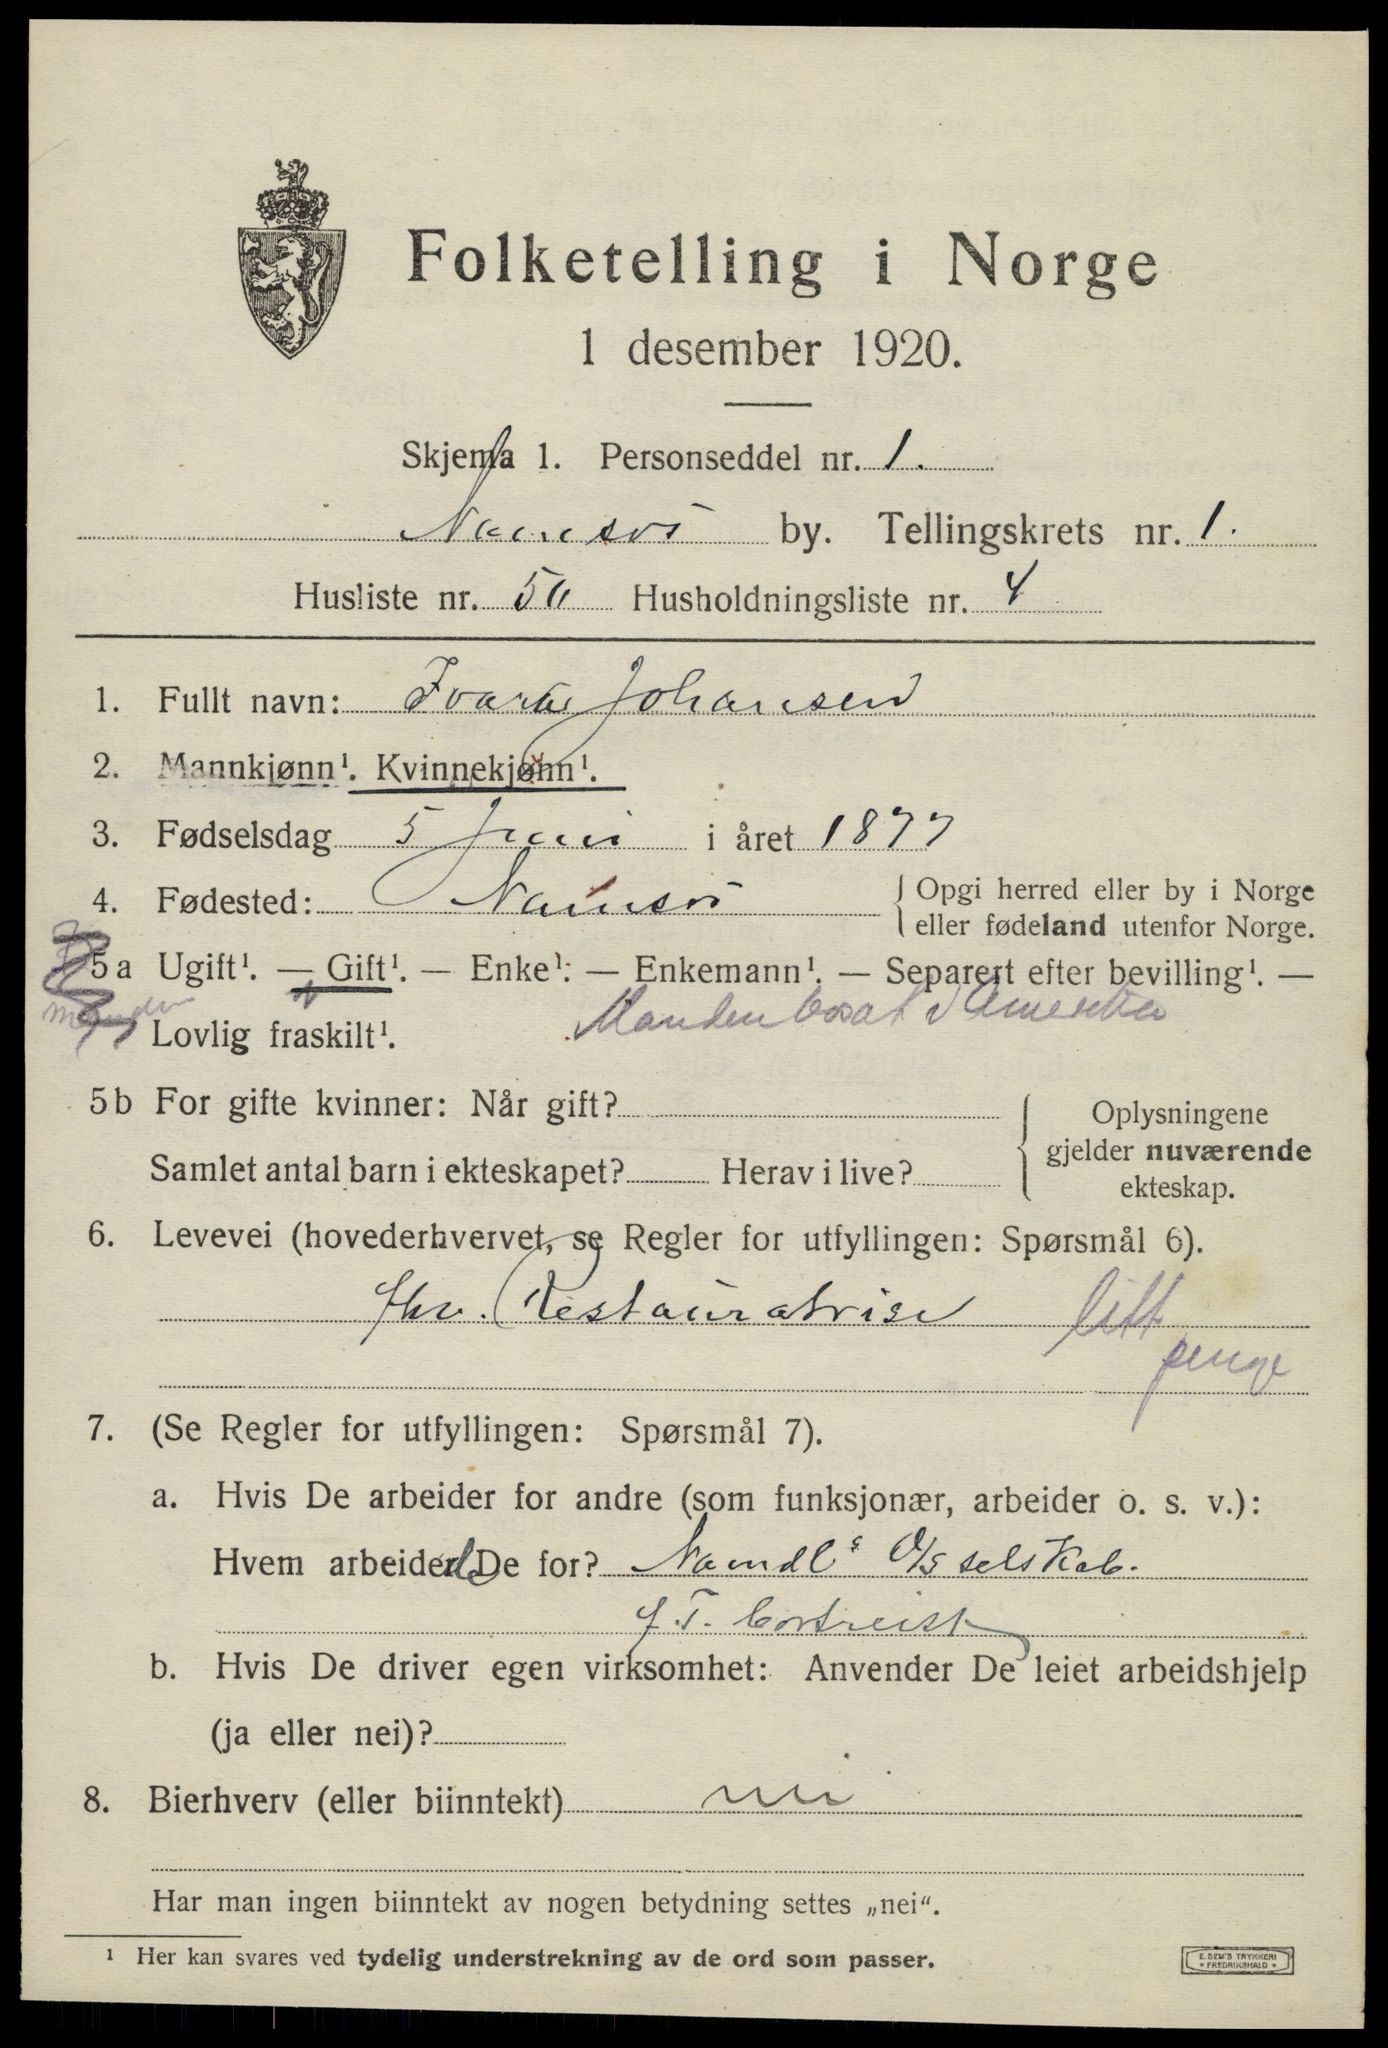 Folketelling i Norge
1 desember 1920.
Skjema 1. Personseddel nr. 1.
Namsos by. Tellingskrets nr. 1.
Husliste nr. 50 Husholdningsliste nr. 4
1. Fullt navn: Johansen
2. Mannkjønn¹. Kvinnekjønn¹.
3. Fødselsdag 5 Juni i året 1877
4. Fødested: Namsos { Opgi herred eller by i Norge
eller fødeland utenfor Norge.
5a Ugift¹. — Gift¹. — Enke¹. — Enkemann¹. — Separert efter bevilling¹. —
Manden bosat i Amerika
Lovlig fraskilt¹.
5b For gifte kvinner: Når gift?
Samlet antal barn i ekteskapet? Herav i live?
Oplysningene
gjelder nuværende
ekteskap.
6. Levevei (hovederhvervet, se Regler for utfyllingen: Spørsmål 6).
fhv. Restauratrise litt
penge
7. (Se Regler for utfyllingen: Spørsmål 7).
a. Hvis De arbeider for andre (som funksjonær, arbeider o. s. v.):
Hvem arbeider De for? Namdls D/S selskab.
f. T. bortreist
b. Hvis De driver egen virksomhet: Anvender De leiet arbeidshjelp
(ja eller nei)?
8. Bierhverv (eller biinntekt) nei
Har man ingen biinntekt av nogen betydning settes „nei“.
¹ Her kan svares ved tydelig understrekning av de ord som passer.
E. SEM'S TRYKKERI
* FREDRIKSHALD *